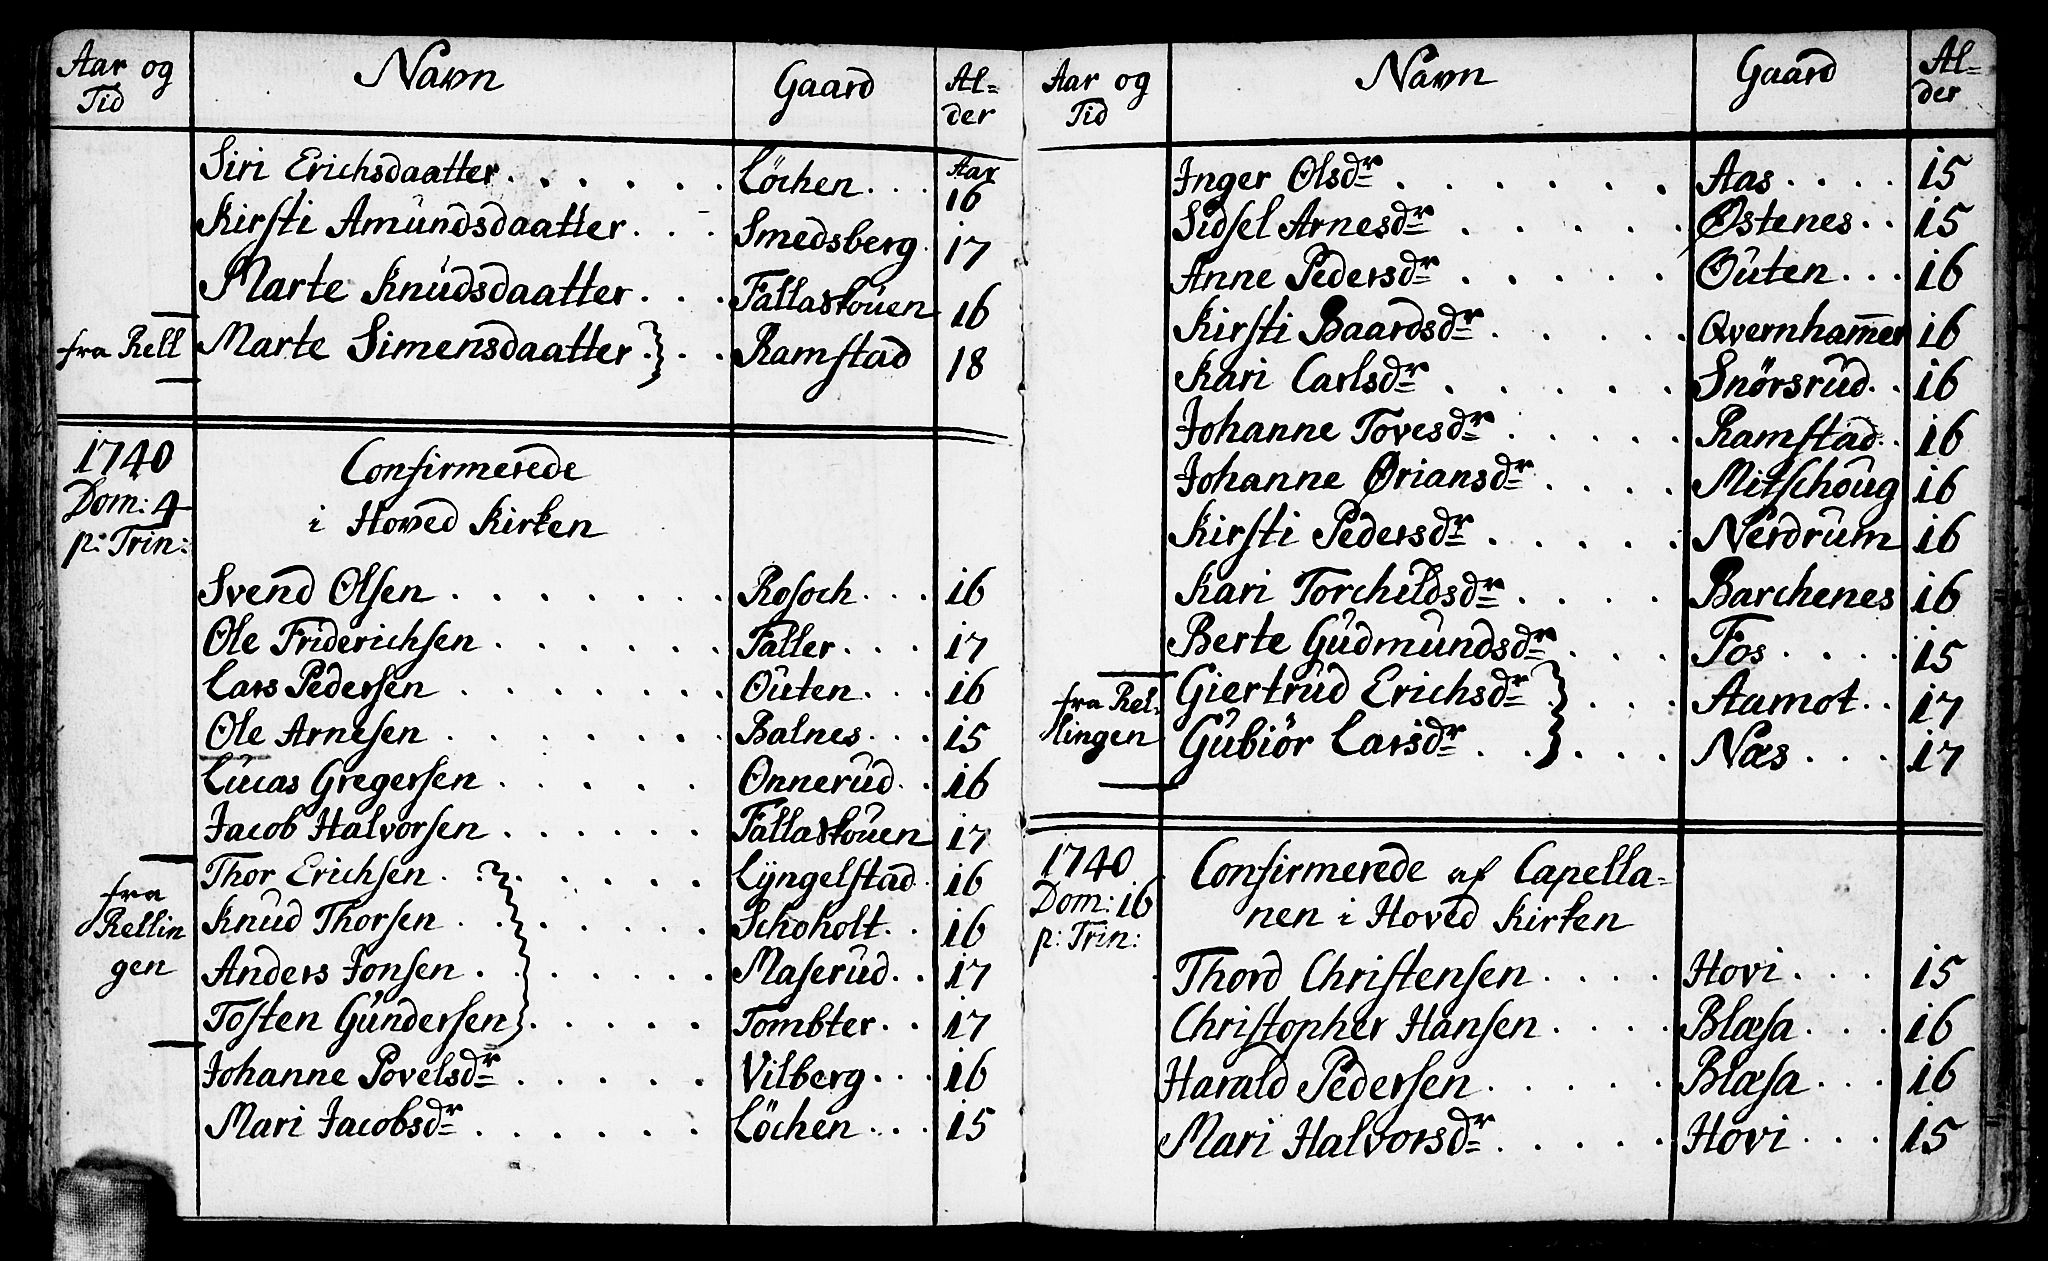 Aar og Tid | Navn | Gaard | Al=der
Siri Erichsdaatter | Löchen | Aar 16
Kirsti Amundsdaatter | Smedsberg | 17
Marte Knudsdaatter | Fallaskouen | 16
fra Rell | Marte Simensdaatter | Ramstad | 18
1740 | Confirmerede
Dom: 4 | i Hoved Kirken
p: Trin:
Svend Olsen | Rosoch | 16
Ole Friderichsen | Faller | 17
Lars Pedersen | Outen | 16
Ole Arnesen | Balnes | 15
Lucas Gregersen | Onnerud | 16
Jacob Halvorsen | Fallaskouen | 17
Thor Erichsen | Lyngelstad | 16
fra
Rellin | Knud Thorsen | Schoholt | 16
gen | Anders Jonsen | Maserud | 17
Tosten Gundersen | Tombter | 17
Johanne Povelsdr | Vilberg | 16
Mari Jacobsdr | Löchen | 15
Aar og Tid | Navn | Gaard | Al=der
Inger Olsdr | Aas | 15
Sidsel Arnesdr | Østenes | 15
Anne Pedersdr | Outen | 16
Kirsti Baardsdr | Qvernham̅er | 16
Kari Carlsdr | Snörsrud | 16
Johanne Tovesdr | Ramstad | 16
Johanne Øriansdr | Mitschoug | 16
Kirsti Pedersdr | Nerdrum | 16
Kari Torchildsdr | Barchenes | 16
Berte Gudmundsdr | Fos | 15
fra Rel- | Giertrud Erichsdr | Aamot | 17
lingen | Gubiör Larsdr | Næs | 17
1740 | Confirmerede af Capella=
Dom: 16 | nen i Hoved Kirken
p: Trin:
Thord Christensen | Hovi | 15
Christopher Hansen | Blæsa | 16
Harald Pedersen | Blæsa | 16
Mari Halvorsdr | Hovi | 15